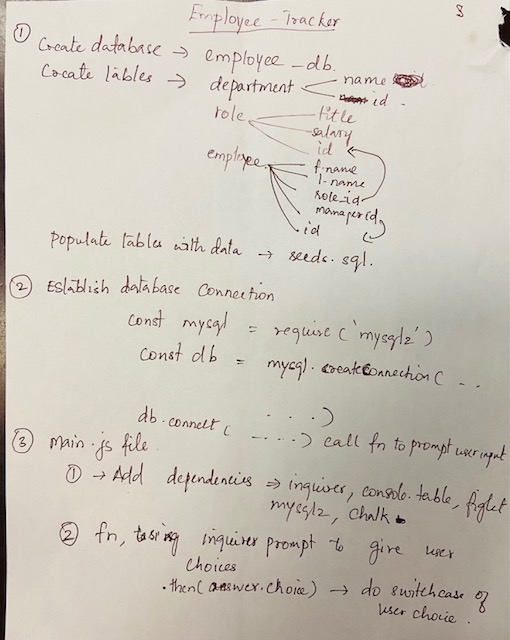 Employee - Tracker
3
① Create database → employee_db.
Create tables → department name
id.
role title
salary
id
employee f.name
l-name
role_id
manager id
id
Populate tables with data → seeds.sql.
② Establish database connection
const mysql = require('mysql2')
const db = mysql.createConnection( ...
db.connect( ....)
....) call fn to prompt user input
③ main.js file
① → Add dependencies ⇒ inquirer, console.table, figlet
mysql2, chalk
② fn, using inquirer prompt to give user
choices
.then(answer.choice) → do switchcase of
user choice.